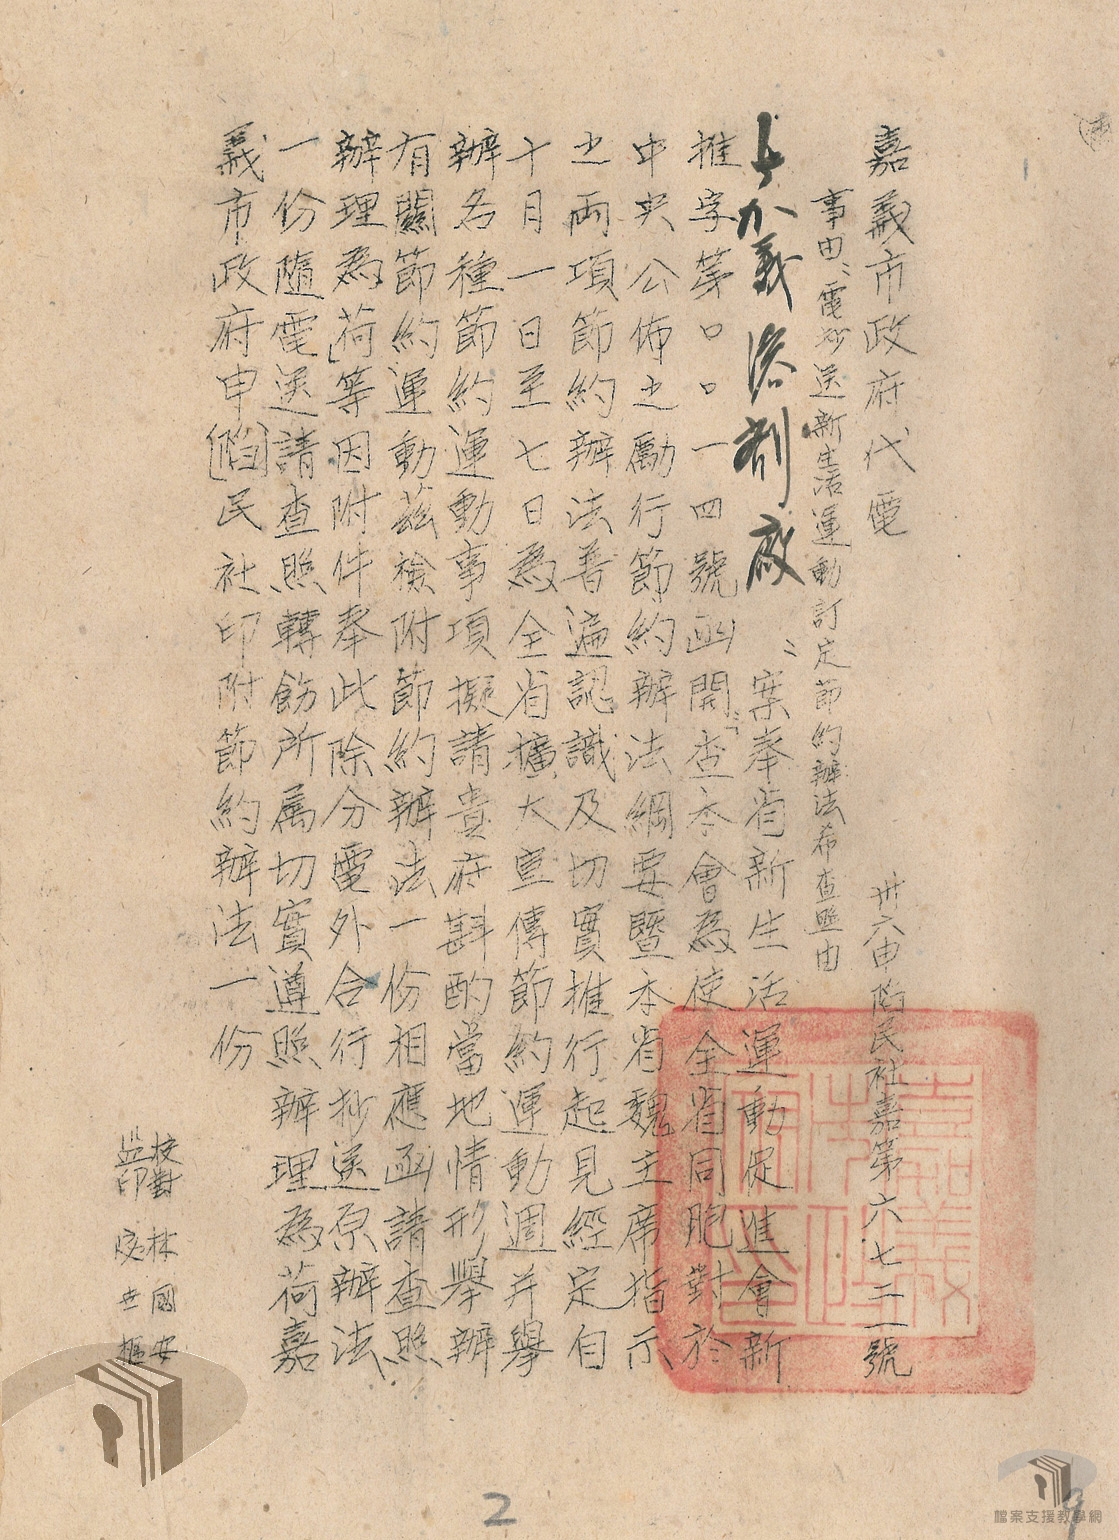 嘉義市政府代電 卅六申陷民社嘉第六七三一號
事由：電抄送新生活運動訂定節約辦法希查照由
嘉義溶劑廠：案奉省新生活運動促進會新
推字第〇〇一四號函開：「查本會為使全省同胞對於
中央公佈之勵行節約辦法綱要暨本省魏主席指示
之兩項節約辦法普遍認識及切實推行起見經定自
十月一日至七日為全省擴大宣傳節約運動週并舉
辦各種節約運動事項擬請貴府斟酌當地情形舉辦
有關節約運動茲檢附節約辦法一份相應函請查照
辦理為荷」等因附件奉此除分電外合行抄送原辦法
一份隨電送請查照轉飭所属切實遵照辦理為荷嘉
義市政府申(陷)民社印附節約辦法一份
校對 林國安
監印
嘉義市政府印
2
檔案支援教學網